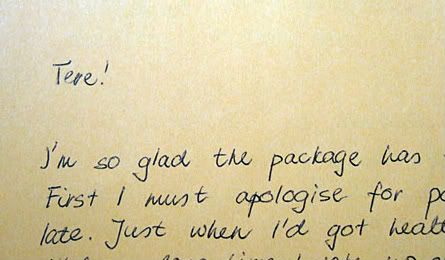 Tere!
I'm so glad the package has
First I must apologise for po
late. Just when I'd got healt